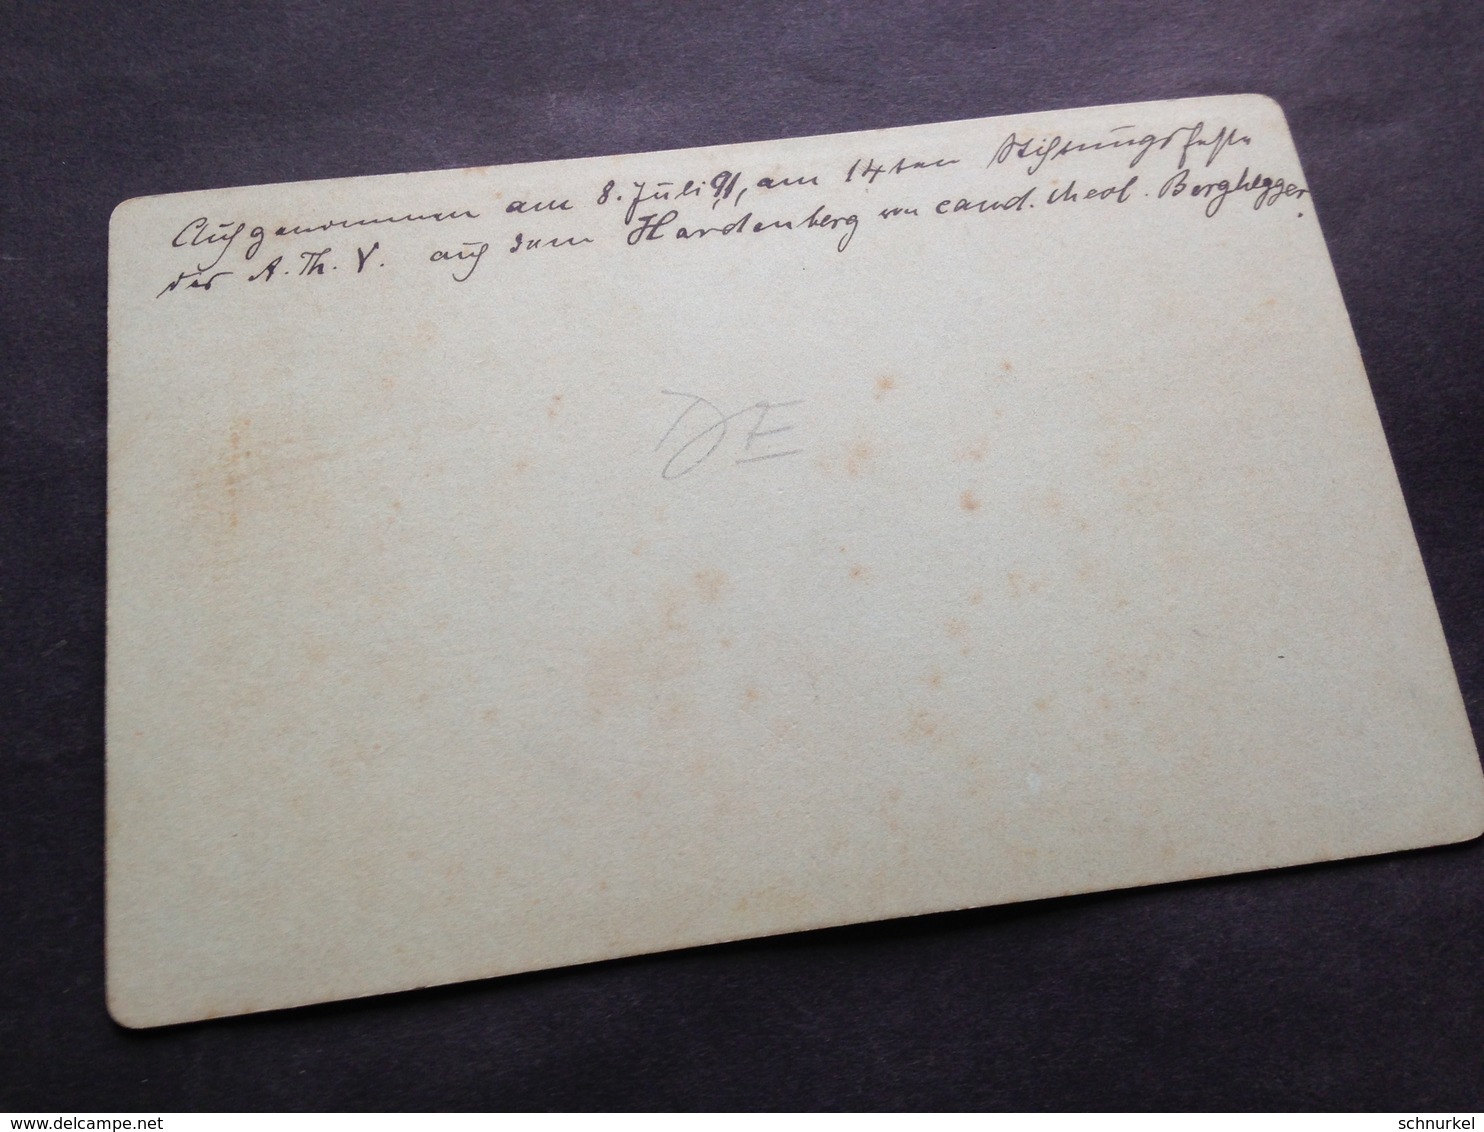 Aufgenommen am 8. Juli 91, am 14ten Stiftungsfeste
des A. Th. V. auf dem Hardenberg von cand. theol. Berghegger.
schnurkel